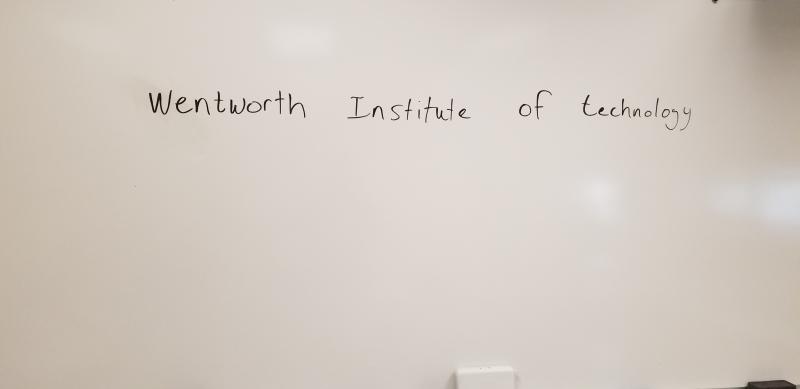 Wentworth Institute of technology